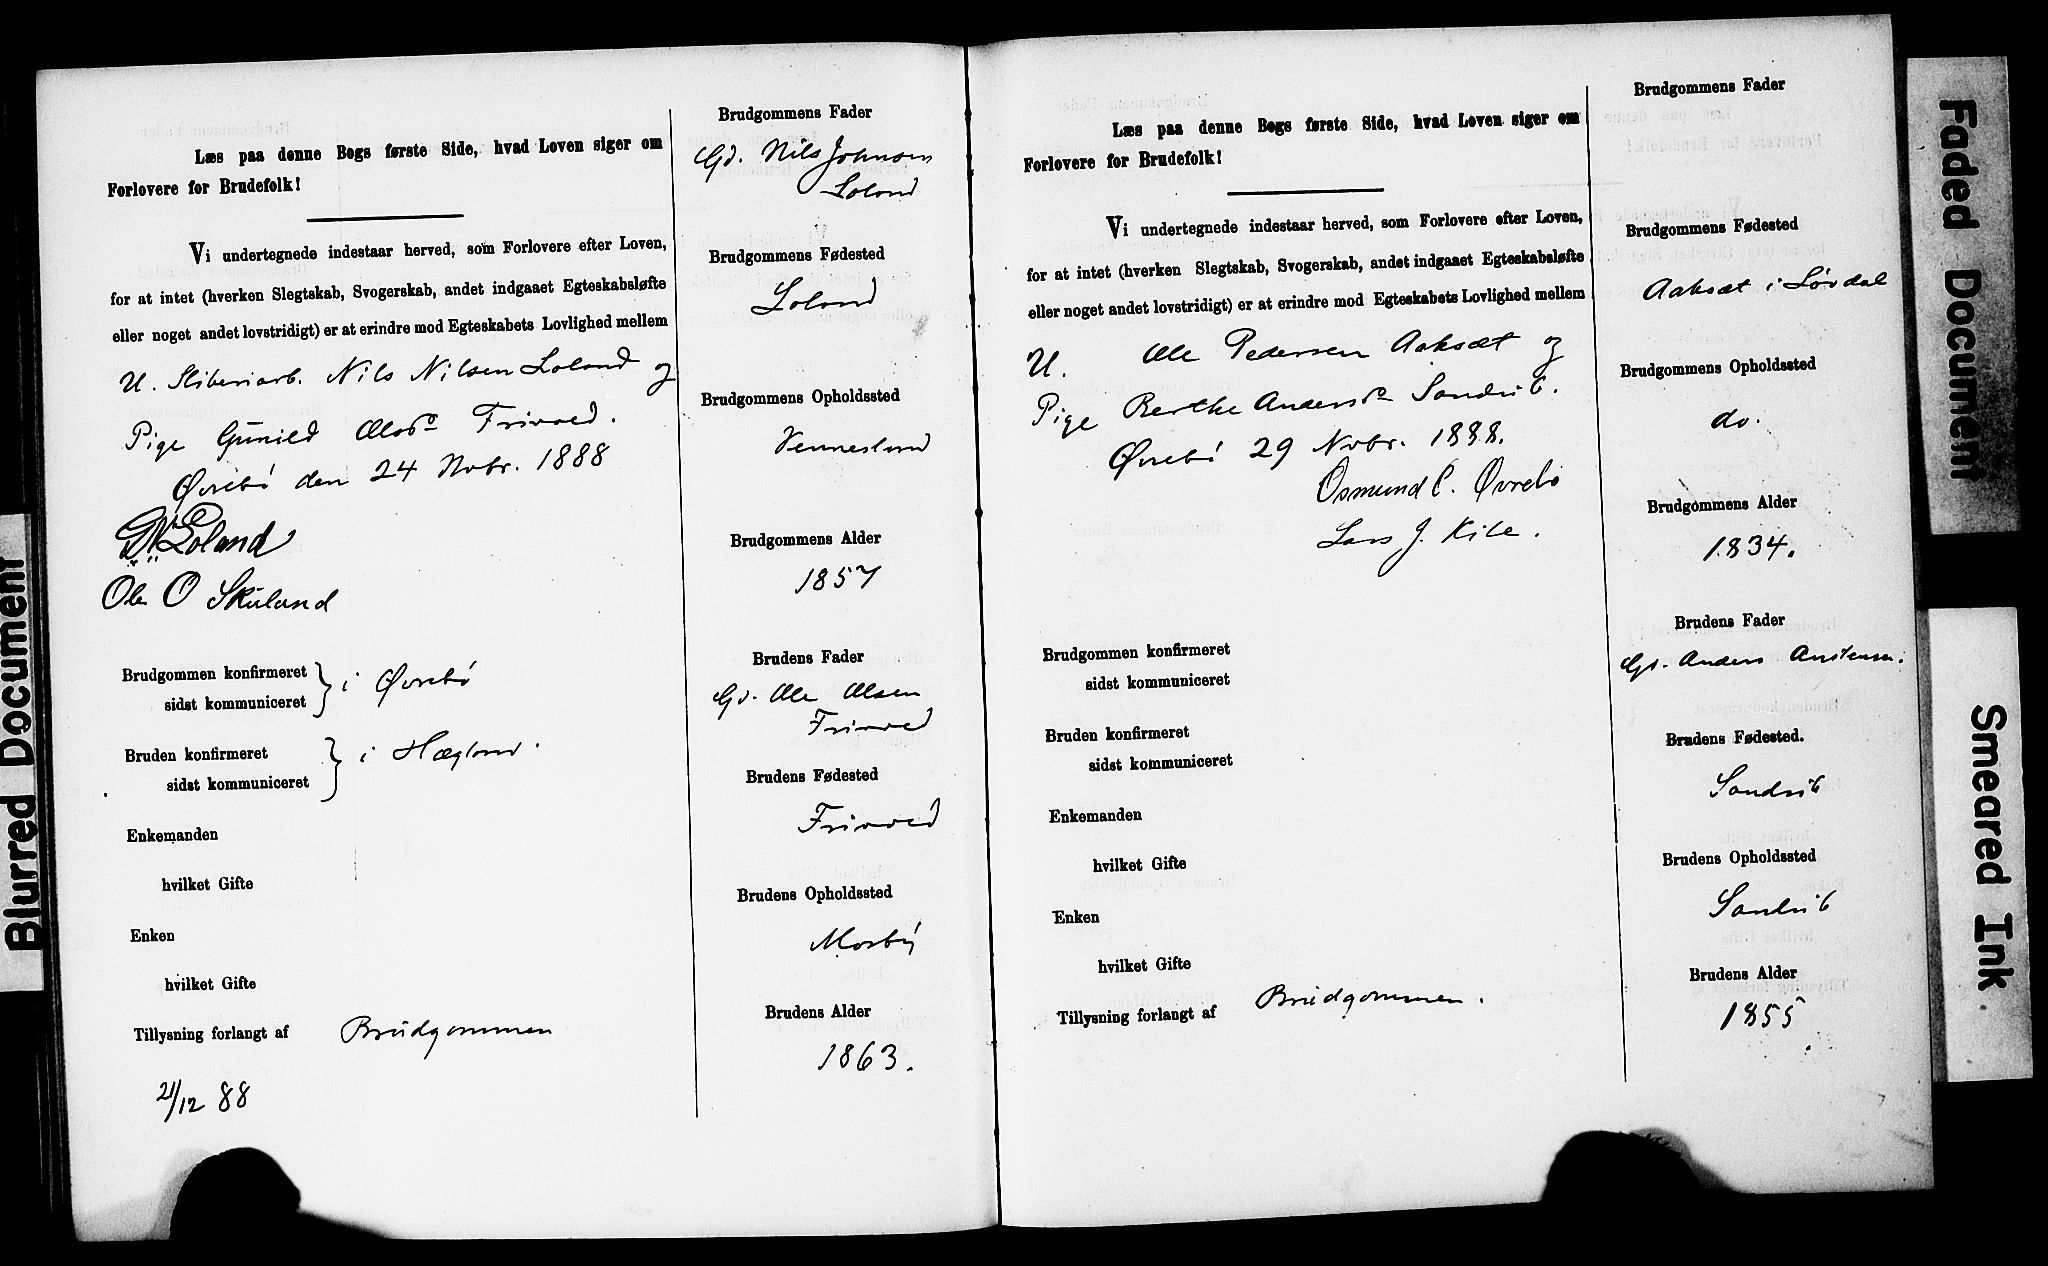 Læs paa denne Bogs første Side, hvad Loven siger om
Forlovere for Brudefolk!
Vi undertegnede indestaar herved, som Forlovere efter Loven,
for at intet (hverken Slegtskab, Svogerskab, andet indgaaet Egteskabsløfte
eller noget andet lovstridigt) er at erindre mod Egteskabets Lovlighed mellem
U. Sliberiarb. Nils Nilsen Loland og
Pige Gunild Olsd Frivold.
Øvrebø den 24 Novbr. 1888
Loland
Ole O Skuland
Brudgommen konfirmeret
sidst kommuniceret } i Øvrebø
Bruden konfirmeret
sidst kommuniceret } i Hægland.
Enkemanden
hvilket Gifte
Enken
hvilket Gifte
Tillysning forlangt af Brudgommen
21/12 88
Brudgommens Fader
Gd. Nils Johnsen
Loland
Brudgommens Fødested
Loland
Brudgommens Opholdssted
Vennesland
Brudgommens Alder
1857
Brudens Fader
Gd. Ole Olsen
Frivold
Brudens Fødested
Frivold
Brudens Opholdssted
Mosby
Brudens Alder
1863.
Læs paa denne Bogs første Side, hvad Loven siger om
Forlovere for Brudefolk!
Vi undertegnede indestaar herved, som Forlovere efter Loven,
for at intet (hverken Slegtskab, Svogerskab, andet indgaaet Egteskabsløfte
eller noget andet lovstridigt) er at erindre mod Egteskabets Lovlighed mellem
U. Ole Pedersen Aaksæt og
Pige Berthe Andersd Sandrib.
Øvrebø 29 Novbr. 1888.
Osmund C. Øvrebø
Lars J. Kile.
Brudgommen konfirmeret
sidst kommuniceret
Bruden konfirmeret
sidst kommuniceret
Enkemanden
hvilket Gifte
Enken
hvilket Gifte
Tillysning forlangt af Brudgommen.
Brudgommens Fader
Brudgommens Fødested
Aaksæt i Løvdal
Brudgommens Opholdssted
do.
Brudgommens Alder
1834.
Brudens Fader
Gd. Anders Anstensen.
Brudens Fødested.
Sandrib
Brudens Opholdssted
Sandrib
Brudens Alder
1855
Blurred Document
Faded Document
Smeared Ink